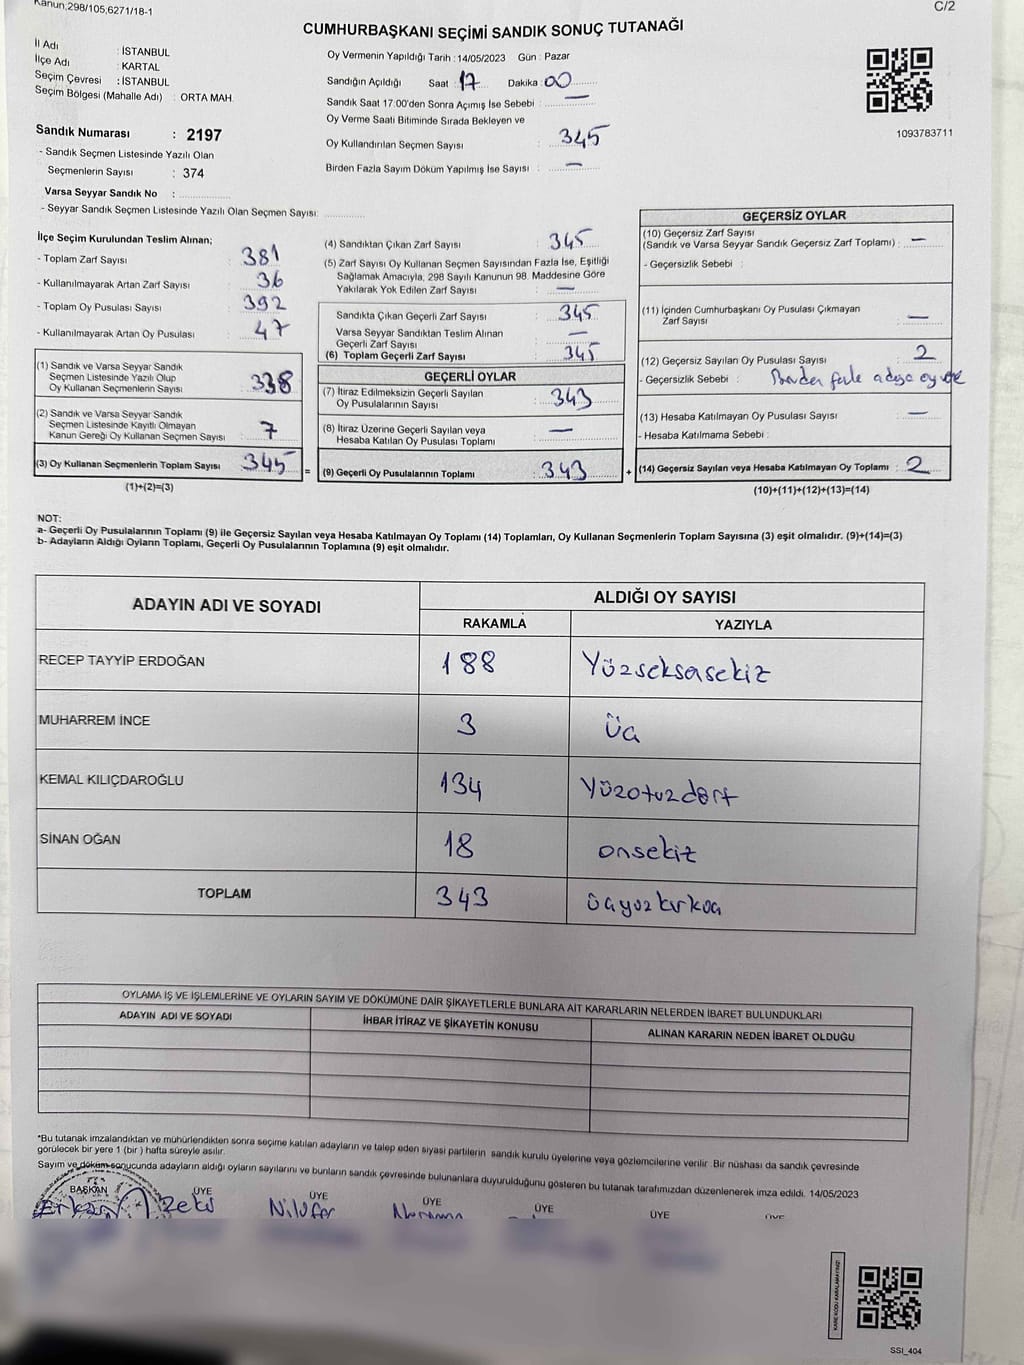 Kanun,298/105,6271/18-1
C/2
CUMHURBAŞKANI SEÇİMİ SANDIK SONUÇ TUTANAĞI
İl Adı : İSTANBUL
İlçe Adı : KARTAL
Seçim Çevresi : İSTANBUL
Seçim Bölgesi (Mahalle Adı) : ORTA MAH.
Oy Vermenin Yapıldığı Tarih : 14/05/2023 Gün : Pazar
Sandığın Açıldığı Saat : 17 Dakika : 00
Sandık Saat 17:00'den Sonra Açımış İse Sebebi : —
Oy Verme Saati Bitiminde Sırada Bekleyen ve
Oy Kullandırılan Seçmen Sayısı : 345
Birden Fazla Sayım Döküm Yapılmış İse Sayısı : —
1093783711
Sandık Numarası : 2197
- Sandık Seçmen Listesinde Yazılı Olan
Seçmenlerin Sayısı : 374
Varsa Seyyar Sandık No :
- Seyyar Sandık Seçmen Listesinde Yazılı Olan Seçmen Sayısı:
İlçe Seçim Kurulundan Teslim Alınan;
- Toplam Zarf Sayısı : 381
- Kullanılmayarak Artan Zarf Sayısı : 36
- Toplam Oy Pusulası Sayısı : 392
- Kullanılmayarak Artan Oy Pusulası : 47
(1) Sandık ve Varsa Seyyar Sandık
Seçmen Listesinde Yazılı Olup
Oy Kullanan Seçmenlerin Sayısı : 338
(2) Sandık ve Varsa Seyyar Sandık
Seçmen Listesinde Kayıtlı Olmayan
Kanun Gereği Oy Kullanan Seçmen Sayısı : 7
(3) Oy Kullanan Seçmenlerin Toplam Sayısı : 345
(1)+(2)=(3)
=
(4) Sandıktan Çıkan Zarf Sayısı : 345
(5) Zarf Sayısı Oy Kullanan Seçmen Sayısından Fazla İse, Eşitliği
Sağlamak Amacıyla, 298 Sayılı Kanunun 98. Maddesine Göre
Yakılarak Yok Edilen Zarf Sayısı : —
Sandıkta Çıkan Geçerli Zarf Sayısı : 345
Varsa Seyyar Sandıktan Teslim Alınan
Geçerli Zarf Sayısı : —
(6) Toplam Geçerli Zarf Sayısı : 345
GEÇERLİ OYLAR
(7) İtiraz Edilmeksizin Geçerli Sayılan
Oy Pusulalarının Sayısı : 343
(8) İtiraz Üzerine Geçerli Sayılan veya
Hesaba Katılan Oy Pusulası Toplamı : —
(9) Geçerli Oy Pusulalarının Toplamı : 343
+
GEÇERSİZ OYLAR
(10) Geçersiz Zarf Sayısı
(Sandık ve Varsa Seyyar Sandık Geçersiz Zarf Toplamı) : —
- Geçersizlik Sebebi :
(11) İçinden Cumhurbaşkanı Oy Pusulası Çıkmayan
Zarf Sayısı : —
(12) Geçersiz Sayılan Oy Pusulası Sayısı : 2
- Geçersizlik Sebebi : adaya oy
(13) Hesaba Katılmayan Oy Pusulası Sayısı : —
- Hesaba Katılmama Sebebi :
(14) Geçersiz Sayılan veya Hesaba Katılmayan Oy Toplamı : 2
(10)+(11)+(12)+(13)=(14)
NOT:
a- Geçerli Oy Pusulalarının Toplamı (9) ile Geçersiz Sayılan veya Hesaba Katılmayan Oy Toplamı (14) Toplamları, Oy Kullanan Seçmenlerin Toplam Sayısına (3) eşit olmalıdır. (9)+(14)=(3)
b- Adayların Aldığı Oyların Toplamı, Geçerli Oy Pusulalarının Toplamına (9) eşit olmalıdır.
ADAYIN ADI VE SOYADI
ALDIĞI OY SAYISI
RAKAMLA YAZIYLA
RECEP TAYYİP ERDOĞAN 188 Yüzseksasekiz
MUHARREM İNCE 3 üa
KEMAL KILIÇDAROĞLU 134 Yüzotuzdört
SİNAN OĞAN 18 onsekiz
TOPLAM 343 üayüzkırküa
OYLAMA İŞ VE İŞLEMLERİNE VE OYLARIN SAYIM VE DÖKÜMÜNE DAİR ŞİKAYETLERLE BUNLARA AİT KARARLARIN NELERDEN İBARET BULUNDUKLARI
ADAYIN ADI VE SOYADI İHBAR İTİRAZ VE ŞİKAYETİN KONUSU ALINAN KARARIN NEDEN İBARET OLDUĞU
*Bu tutanak imzalandıktan ve mühürlendikten sonra seçime katılan adayların ve talep eden siyasi partilerin sandık kurulu üyelerine veya gözlemcilerine verilir. Bir nüshası da sandık çevresinde
görülecek bir yere 1 (bir ) hafta süreyle asılır.
Sayım ve döküm sonucunda adayların aldığı oyların sayılarını ve bunların sandık çevresinde bulunanlara duyurulduğunu gösteren bu tutanak tarafımızdan düzenlenerek imza edildi. 14/05/2023
BAŞKAN ÜYE ÜYE ÜYE ÜYE ÜYE ÜYE
Erkan Zeki Nilüfer
KARE KODU KARALAMAYINIZ!
SSI_404